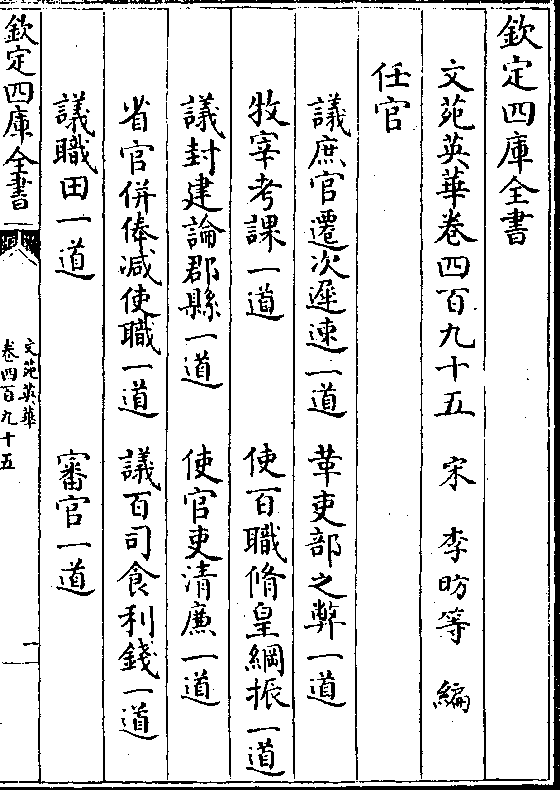 欽定四庫全書
文苑英華卷四百九十五　宋　李昉等　編
任官
議庶官遷次遲速一道　革吏部之弊一道
牧宰考課一道　使百職脩皇綱振一道
議封建論郡縣一道　使官吏清廉一道
省官併俸減使職一道　議百司食利錢一道
議職田一道　審官一道
欽定四庫全書
文苑英華
卷四百九十五
一